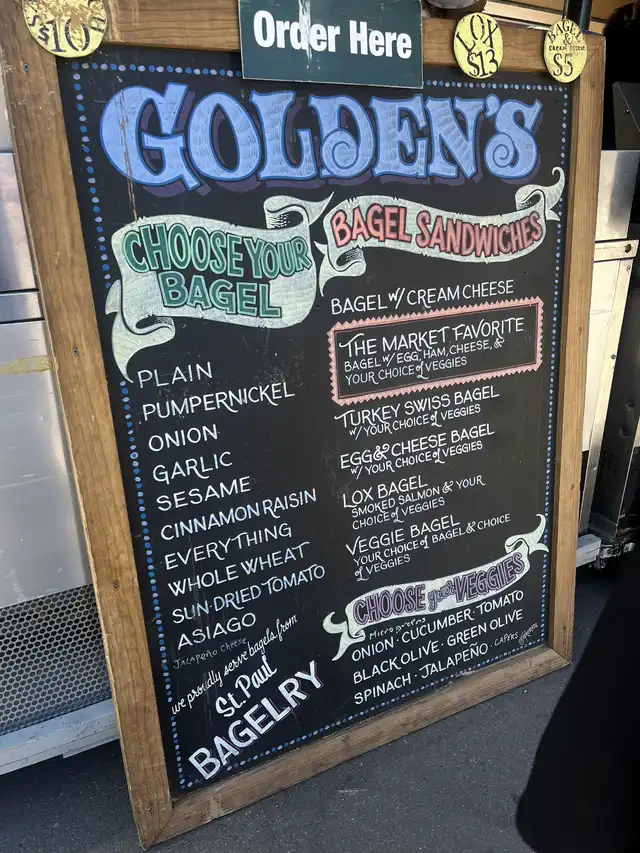 $10
Order Here
LOX
$13
BAGEL
&
CREAM CHEESE
$5
GOLDEN'S
CHOOSE YOUR
BAGEL
PLAIN
PUMPERNICKEL
ONION
GARLIC
SESAME
CINNAMON RAISIN
EVERYTHING
WHOLE WHEAT
SUN-DRIED TOMATO
ASIAGO
JALAPEÑO Cheese
we proudly serve bagels from
St. Paul
BAGELRY
BAGEL SANDWICHES
BAGEL W/ CREAM CHEESE
THE MARKET FAVORITE
BAGEL W/ EGG, HAM, CHEESE, &
YOUR CHOICE of VEGGIES
TURKEY SWISS BAGEL
W/ YOUR CHOICE of VEGGIES
EGG & CHEESE BAGEL
W/ YOUR CHOICE of VEGGIES
LOX BAGEL
SMOKED SALMON & YOUR
CHOICE of VEGGIES
VEGGIE BAGEL
YOUR CHOICE of BAGEL & CHOICE
of VEGGIES
CHOOSE your VEGGIES
Microgreens
ONION · CUCUMBER · TOMATO
BLACK OLIVE · GREEN OLIVE
SPINACH · JALAPEÑO · CAPERS